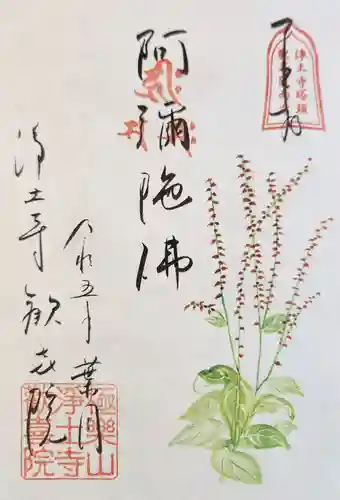 奉拝
阿彌陀佛
令和五年 葉月
浄土寺 歓喜院
極樂山
浄土寺
歓喜院